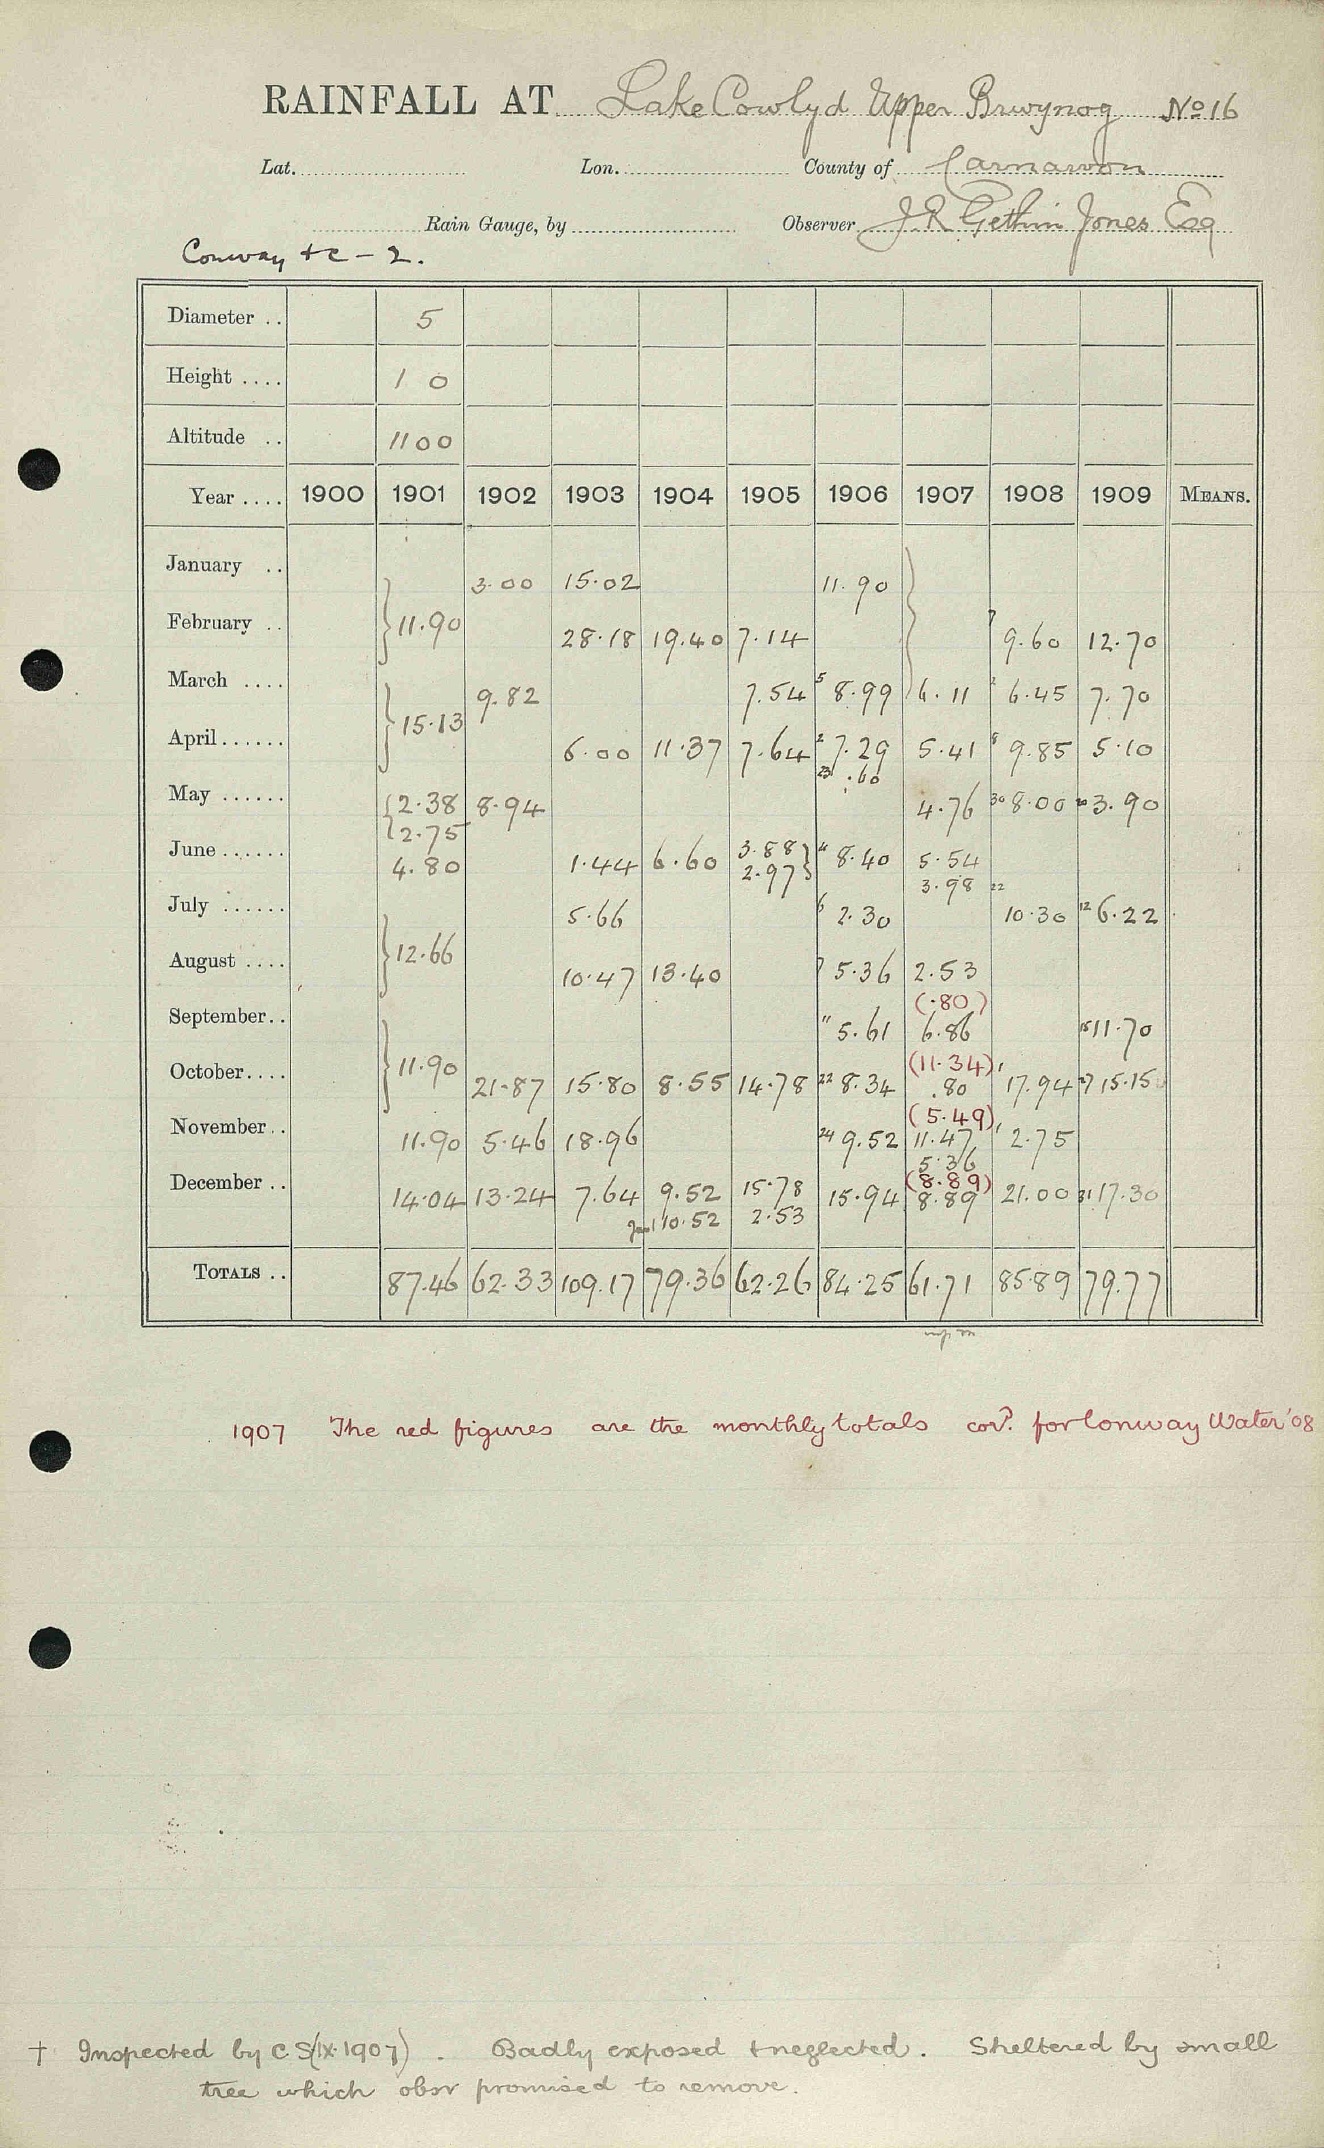 RAINFALL AT Lake Cowlyd Upper Brwynog No 16
Lat. Lon. County of Carnarvon
Rain Gauge, by Observer J. R. Gethin Jones Esq
Conway &c - 2.
Diameter .. 5
Height .... 1 0
Altitude .. 1100
Year .... 1900 1901 1902 1903 1904 1905 1906 1907 1908 1909 MEANS.
January .. 3.00 15.02 11.90
February .. 11.90 28.18 19.40 7.14 7 9.60 12.70
March .... 9.82 7.54 5 8.99 6.11 2 6.45 7.70
April ...... 15.13 6.00 11.37 7.64 2 7.29 5.41 8 9.85 5.10
23 .60
May ...... 2.38 8.94 4.76 30 8.00 3.90
2.75
June ...... 4.80 1.44 6.60 3.88 8.40 5.54
2.97 3.98 22
July ...... 5.66 6 2.30 10.30 12 6.22
August .... 12.66 10.47 13.40 7 5.36 2.53
(.80)
September .. 11 5.61 6.86 15 11.70
(11.34)
October .... 11.90 21.87 15.80 8.55 14.78 22 8.34 .80 17.94 27 15.15
(5.49)
November .. 11.90 5.46 18.96 24 9.52 11.47 2.75
5.36
(8.89)
December .. 14.04 13.24 7.64 9.52 15.78 15.94 8.89 21.00 31 17.30
Jan 1 10.52 2.53
TOTALS .. 87.46 62.33 109.17 79.36 62.26 84.25 61.71 85.89 79.77
1907 The red figures are the monthly totals cord. for Conway Water '08
† Inspected by C.S (IX.1907). Badly exposed & neglected. Sheltered by small
tree which obsr promised to remove.